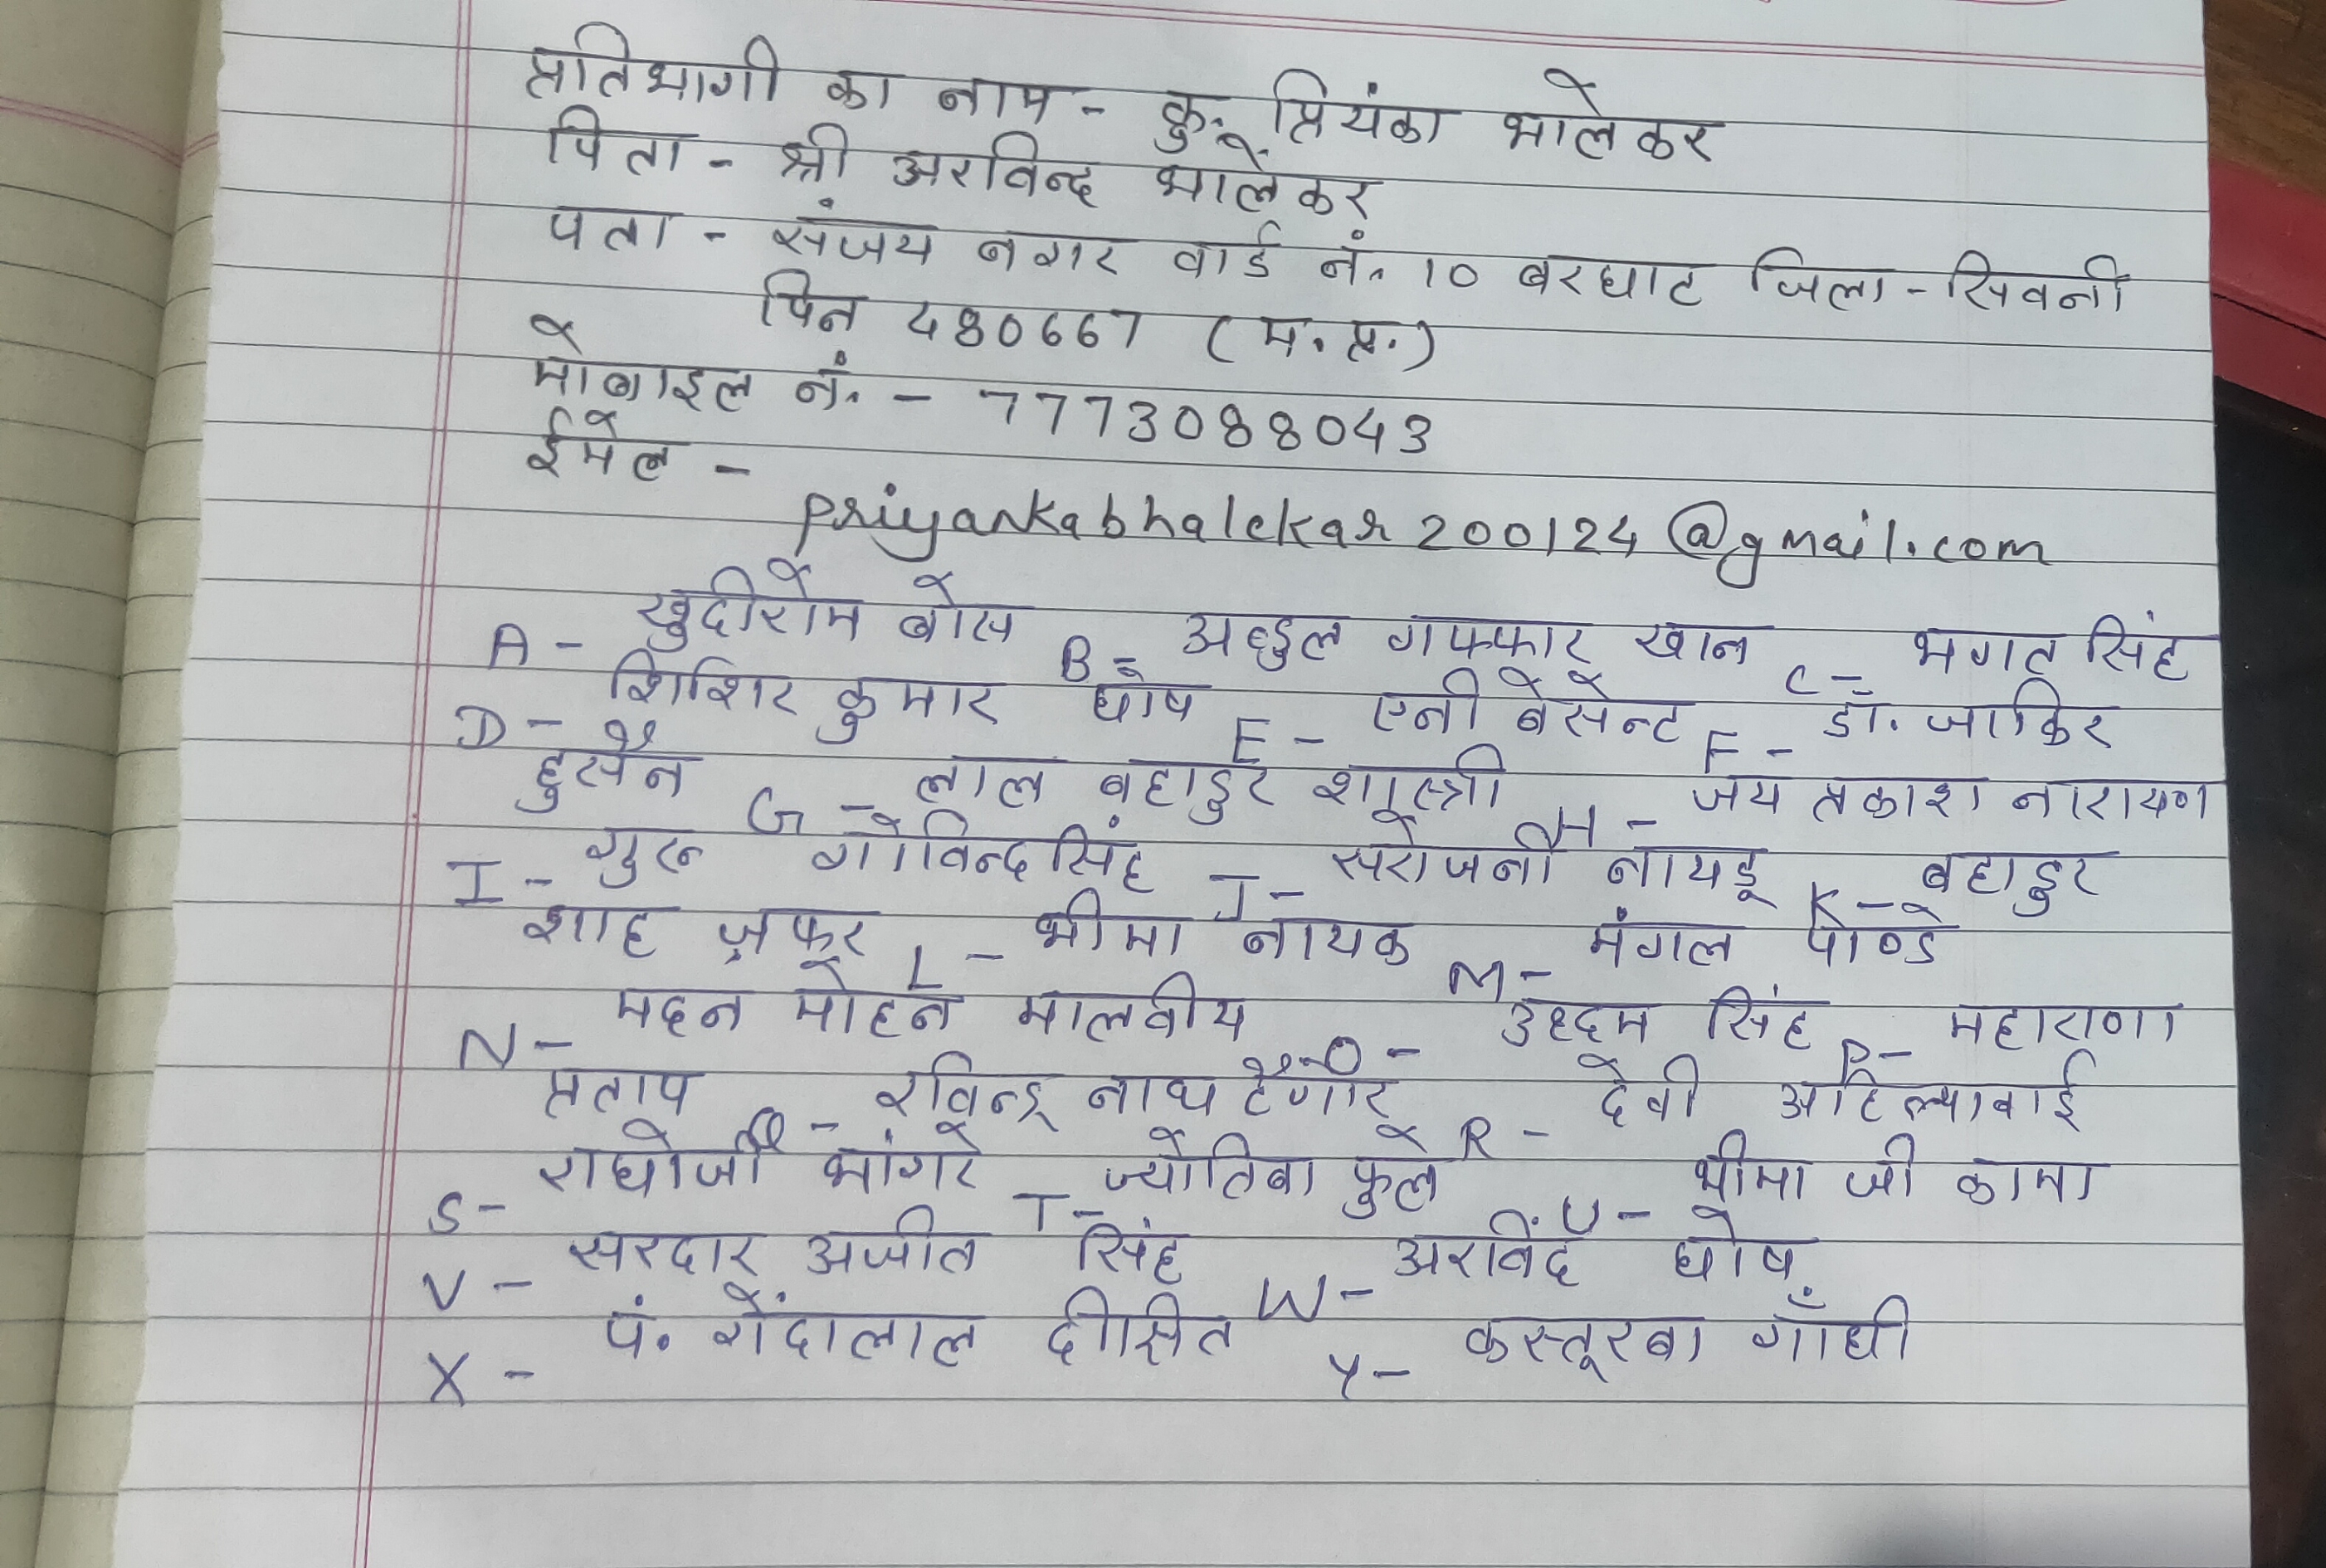 प्रतिभागी का नाम - कु. प्रियंका भालेकर
पिता - श्री अरविन्द भालेकर
पता - संजय नगर वार्ड नं. 10 बरघाट जिला - सिवनी
पिन 480667 (म.प्र.)
मोबाइल नं. - 7773088043
ईमेल -
priyankabhalekar200124@gmail.com
A - खुदीरोम बोस B - अब्दुल गफ्फार खान C - भगत सिंह
D - शिशिर कुमार घोष E - एनी बेसेन्ट F - डॉ. जाकिर
हुसैन G - लाल बहादुर शास्त्री H - जय प्रकाश नारायण
I - गुरु गोविन्द सिंह J - सरोजनी नायडू K - बहादुर
शाह ज़फर L - भीमा नायक M - मंगल पाण्डे
N - मदन मोहन मालवीय O - उद्दम सिंह P - महाराणा
प्रताप Q - रविन्द्र नाथ टैगोर R - देवी अहिल्याबाई
S - राघोजी भांगरे T - ज्योतिबा फुले U - भीमा जी कामा
V - सरदार अजीत सिंह W - अरविंद घोष
X - पं. गेंदालाल दीक्षित Y - कस्तूरबा गाँधी